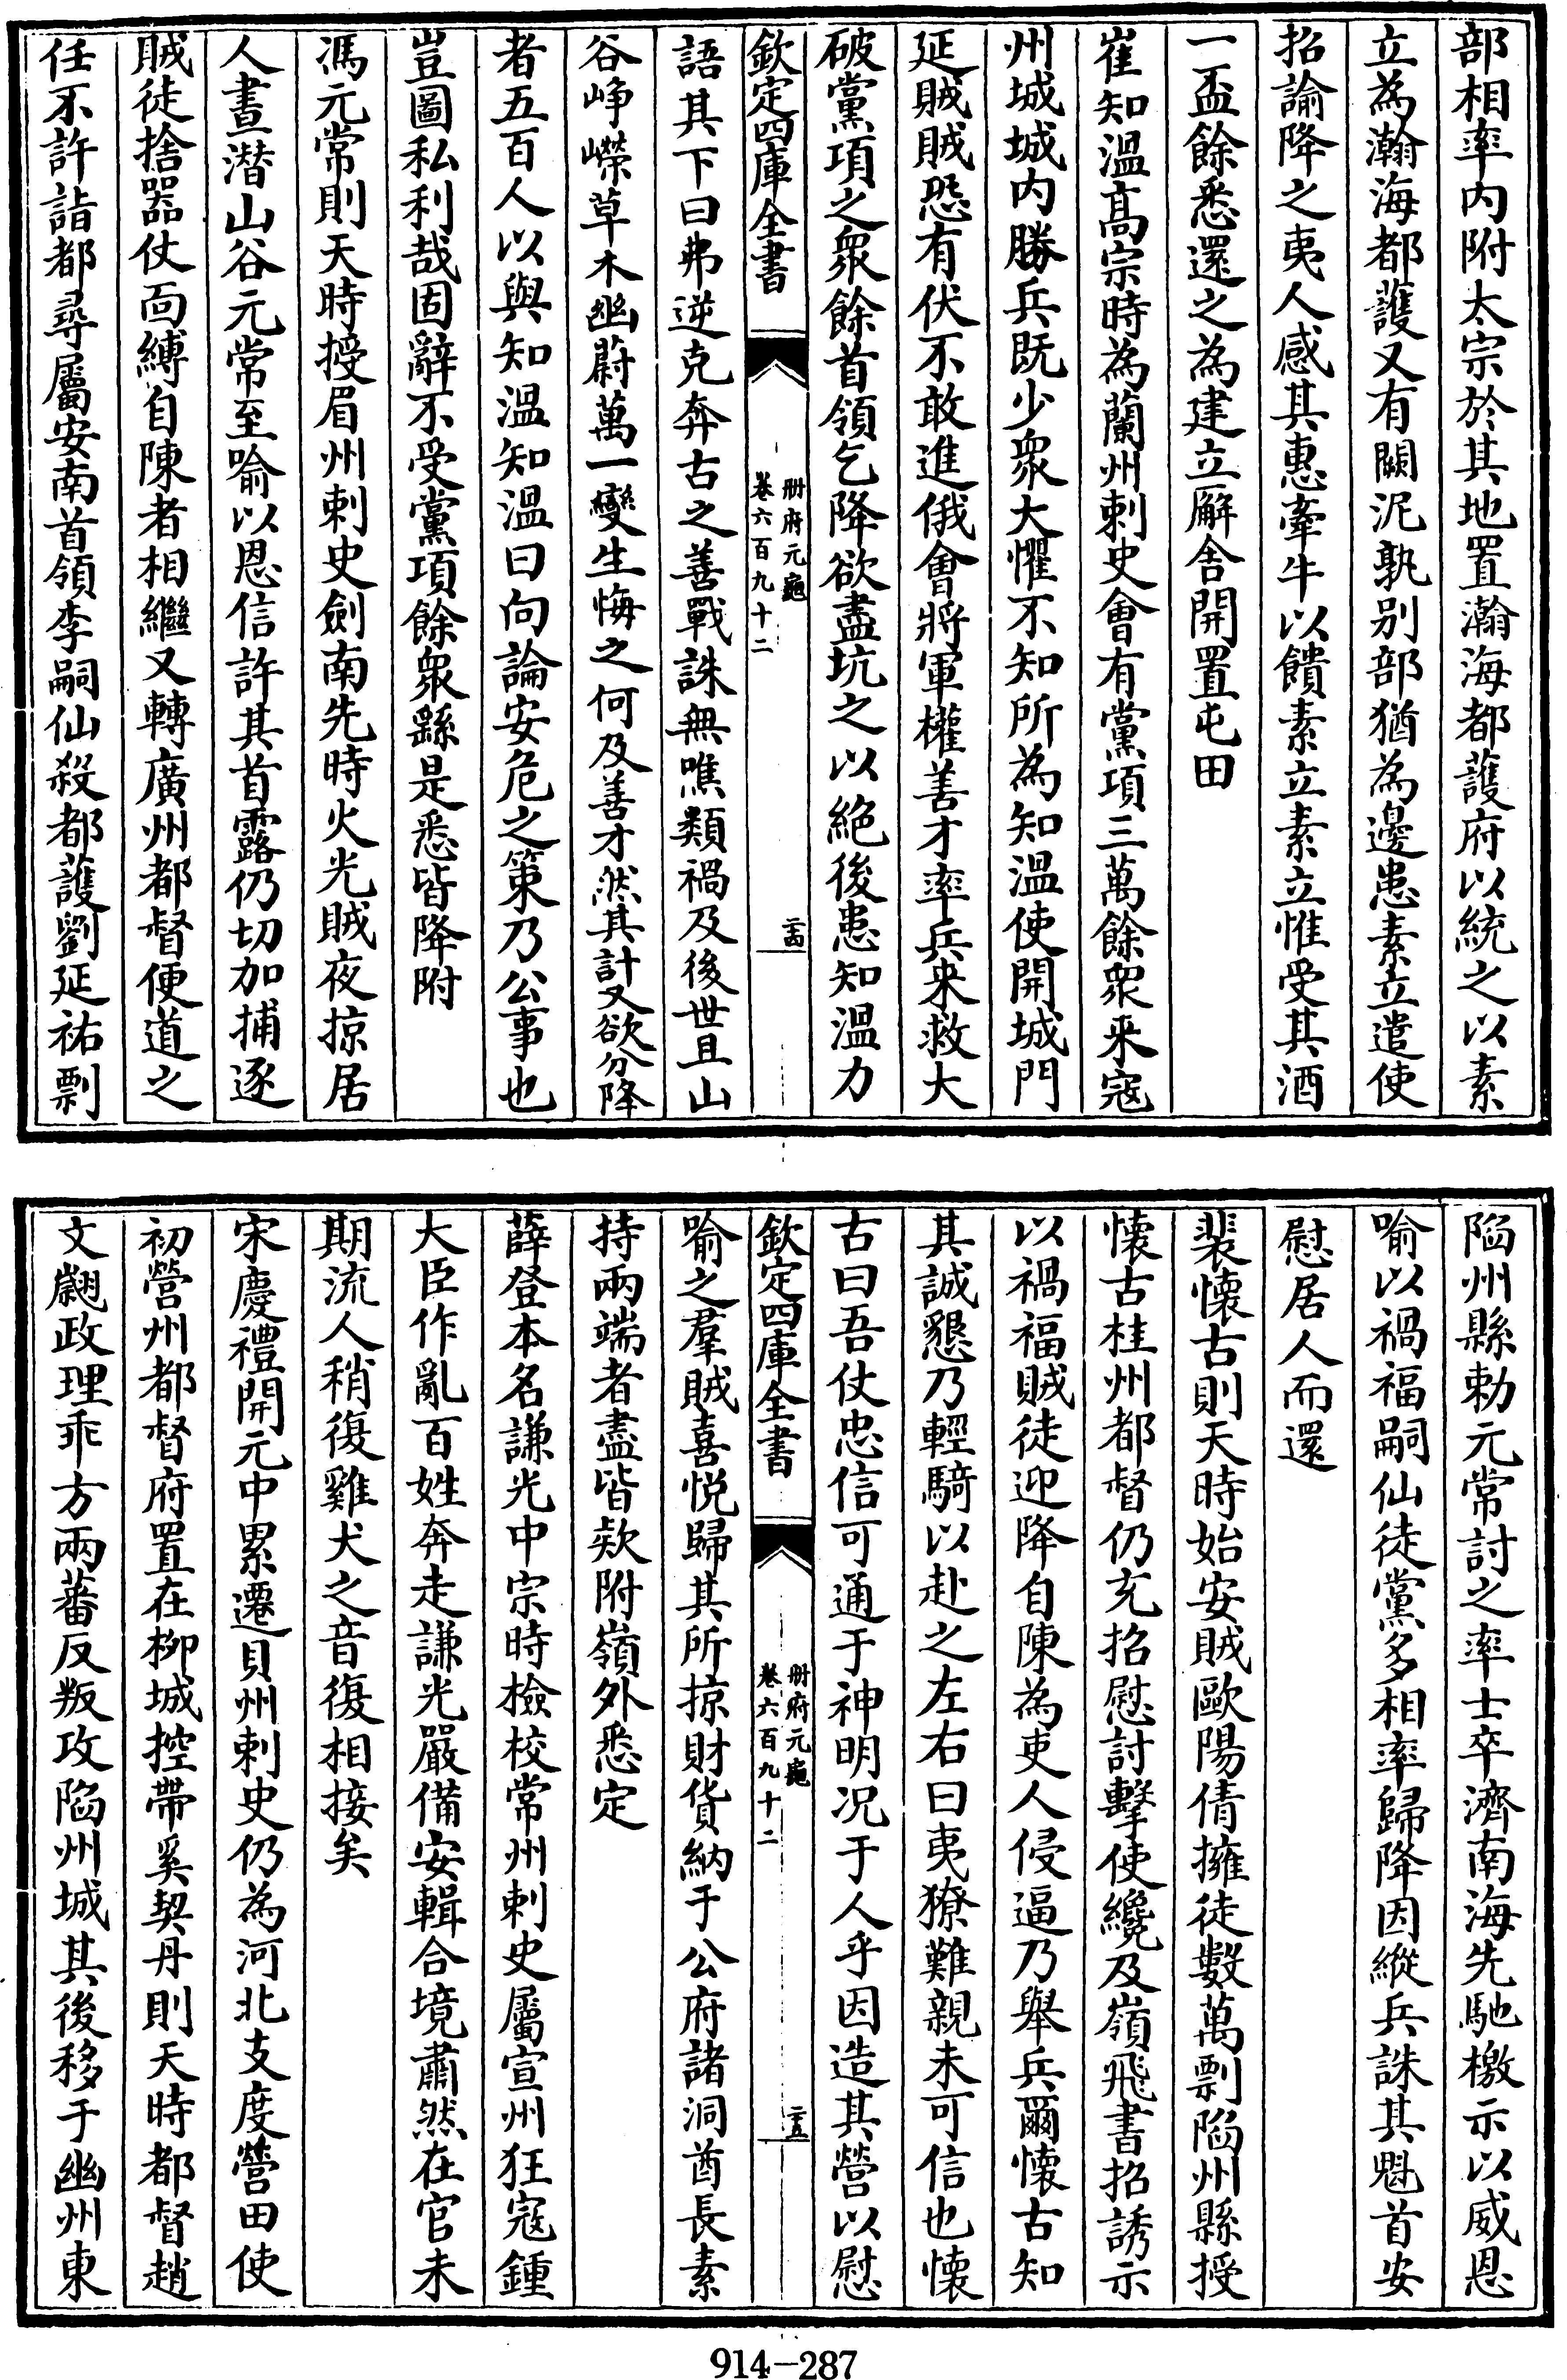 部相率内附太宗於其地置瀚海都䕶府以統之以素
立為瀚海都䕶又有闕泥孰别部猶為邊患素立遣使
招諭降之夷人感其惠牽牛以饋素立素立惟受其酒
一盃餘悉還之為建立廨舍開置屯田
崔知温高宗時為蘭州刺史會有黨項三萬餘衆來寇
州城城内勝兵既少衆大懼不知所為知温使開城門
延賊賊恐有伏不敢進俄會將軍權善才率兵来救大
破黨項之衆餘首領乞降欲盡坑之以絶後患知温力
欽定四庫全書
册府元龜
卷六百九十二
二十四
語其下曰弗逆克奔古之善戰誅無噍類禍及後世且山
谷峥嶸草木幽蔚萬一變生悔之何及善才然其計又欲分降
者五百人以與知温知温曰向論安危之策乃公事也
豈圖私利哉固辭不受黨項餘衆繇是悉皆降附
馮元常則天時授眉州刺史劍南先時火光賊夜掠居
人晝潜山谷元常至喻以恩信許其首露仍切加捕逐
賊徒捨器仗面縛自陳者相繼又轉廣州都督便道之
任不許詣都尋屬安南首領李嗣仙殺都䕶劉延祐剽
陷州縣勅元常討之率士卒濟南海先馳檄示以威恩
喻以禍福嗣仙徒黨多相率歸降因縱兵誅其魁首安
慰居人而還
裴懷古則天時始安賊歐陽倩擁徒數萬剽陷州縣授
懷古桂州都督仍充招慰討擊使纔及嶺飛書招誘示
以禍福賊徒迎降自陳為吏人侵逼乃舉兵爾懷古知
其誠懇乃輕騎以赴之左右曰夷獠難親未可信也懷
古曰吾仗忠信可通于神明况于人乎因造其營以慰
欽定四庫全書
册府元龜
卷六百九十二
二十五
喻之羣賊喜悦歸其所掠財貨納于公府諸洞酋長素
持兩端者盡皆欵附嶺外悉定
薛登本名謙光中宗時檢校常州刺史屬宣州狂寇鍾
大臣作亂百姓奔走謙光嚴備安輯合境肅然在官未
期流人稍復雞犬之音復相接矣
宋慶禮開元中累遷貝州刺史仍為河北支度營田使
初營州都督府置在柳城控帶奚契丹則天時都督趙
文翽政理乖方兩蕃反叛攻陷州城其後移于幽州東
914-287